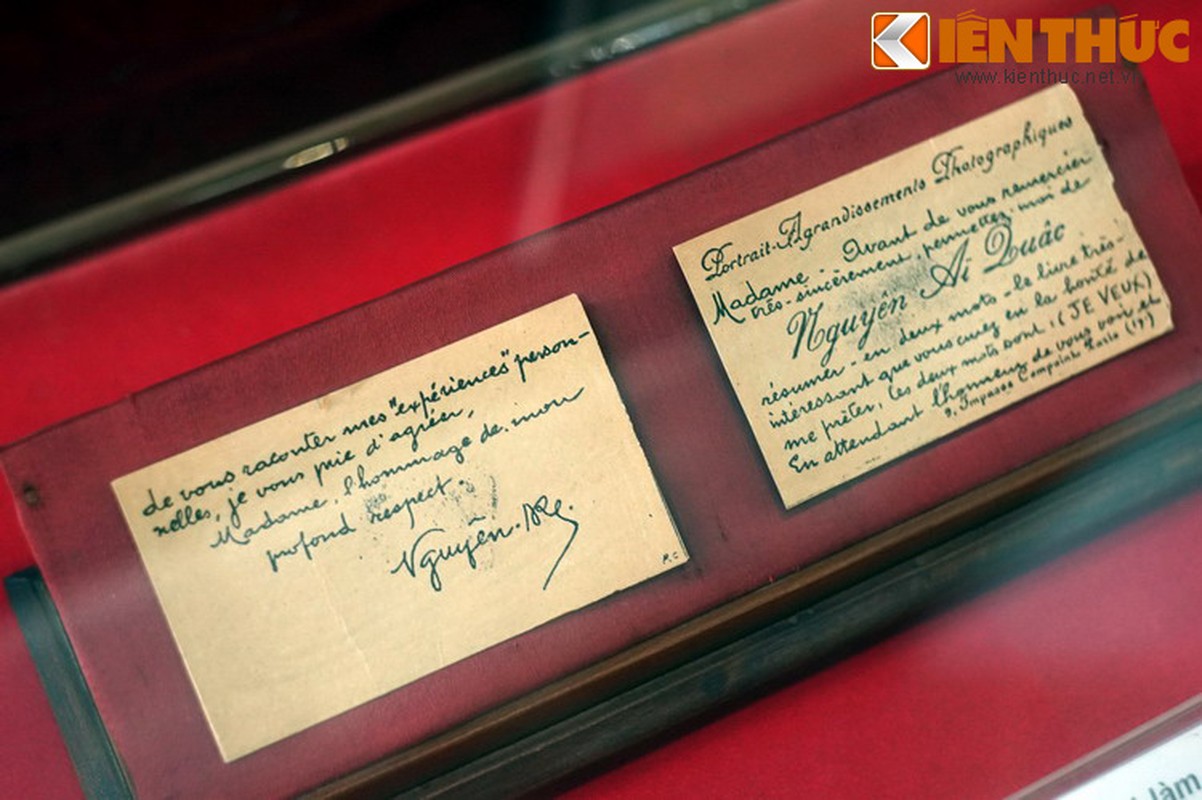 KIẾN THỨC
www.kienthuc.net.vn
Portrait-Agrandissements Photographiques
Madame. Avant de vous remercier
très-sincèrement, permettez-moi de
Nguyên Aï Quâc
résumer-en deux mots-le livre très-
intéressant que vous cuez en la bonté de
me prêter, les deux mots sont: (JE VEUX)
En attendant l'honneur de vous voir et
9, Impasse Compoint Paris (17)
de vous raconter mes "expériences" person-
nelles, je vous prie d'agréer,
Madame, l'hommage de mon
profond respect.
Nguyên
làm